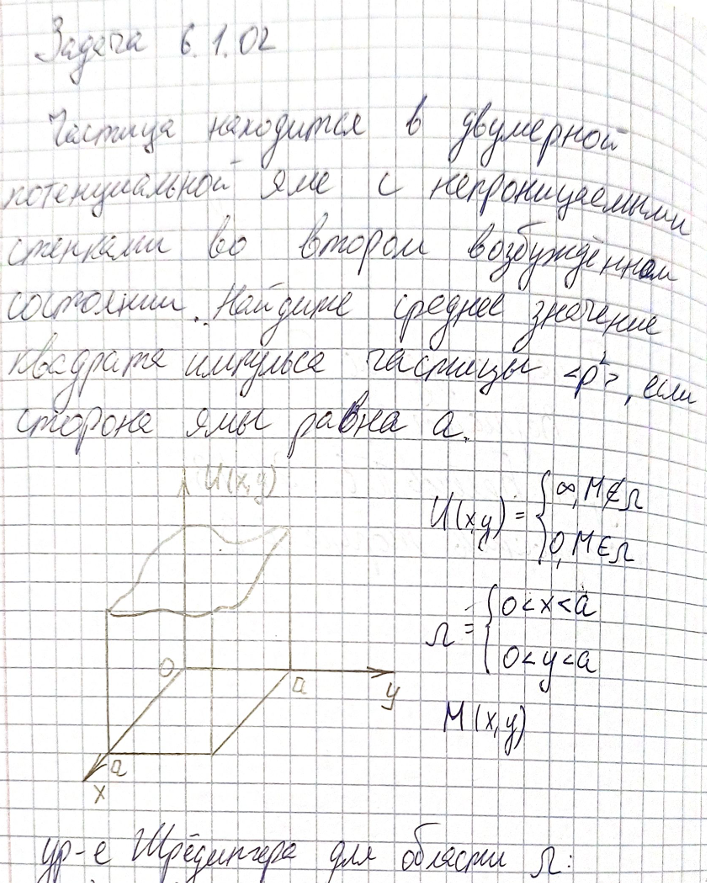 Задача 6.1.02
Частица находится в двумерной
потенциальной яме с непроницаемыми
стенками во втором возбуждённом
состоянии. Найдите среднее значение
квадрата импульса частицы <p²>, если
сторона ямы равна a.
U(x,y)
U(x,y) = { ∞, M∉Ω
0, M∈Ω
Ω = { 0<x<a
0<y<a
O
a
y
M(x,y)
a
x
ур-е Шрёдингера для области Ω: